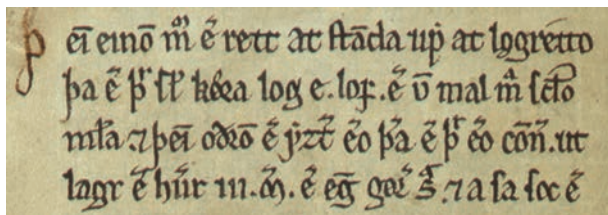 Þ eī einō m̄ ē rett at ſtāda up̄ at lǫgretto
þa ē þr̄ ſl̄ kǽra lǫg e. lof. ē ū mal m̄ ſclo
mła ⁊ þeī odrō ē yzt̄ ēo þ̄a ē þr̄ ēo cōn̄. ut
lagr ē hūr iii. m̄. ē eg̅ gor̄ s̄. ⁊ a ſa ſoc ē